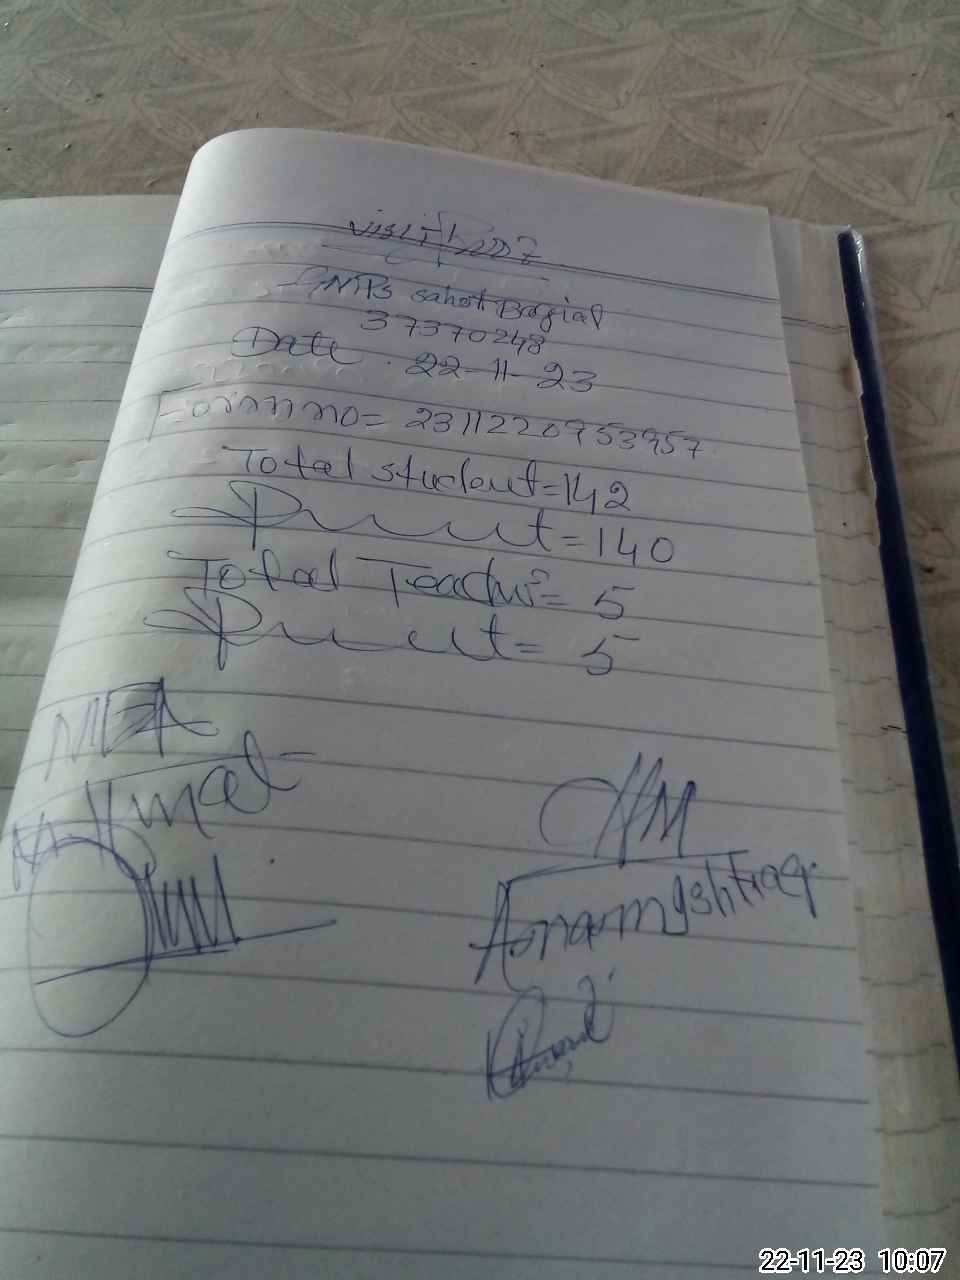 visit
GMPS sahot Bagial
37370248
Date 22-11-23
Form no= 2311220953957
Total student=142
Present=140
Total Teacher= 5
Present= 5
MEA
Ajmal
HM
22-11-23 10:07